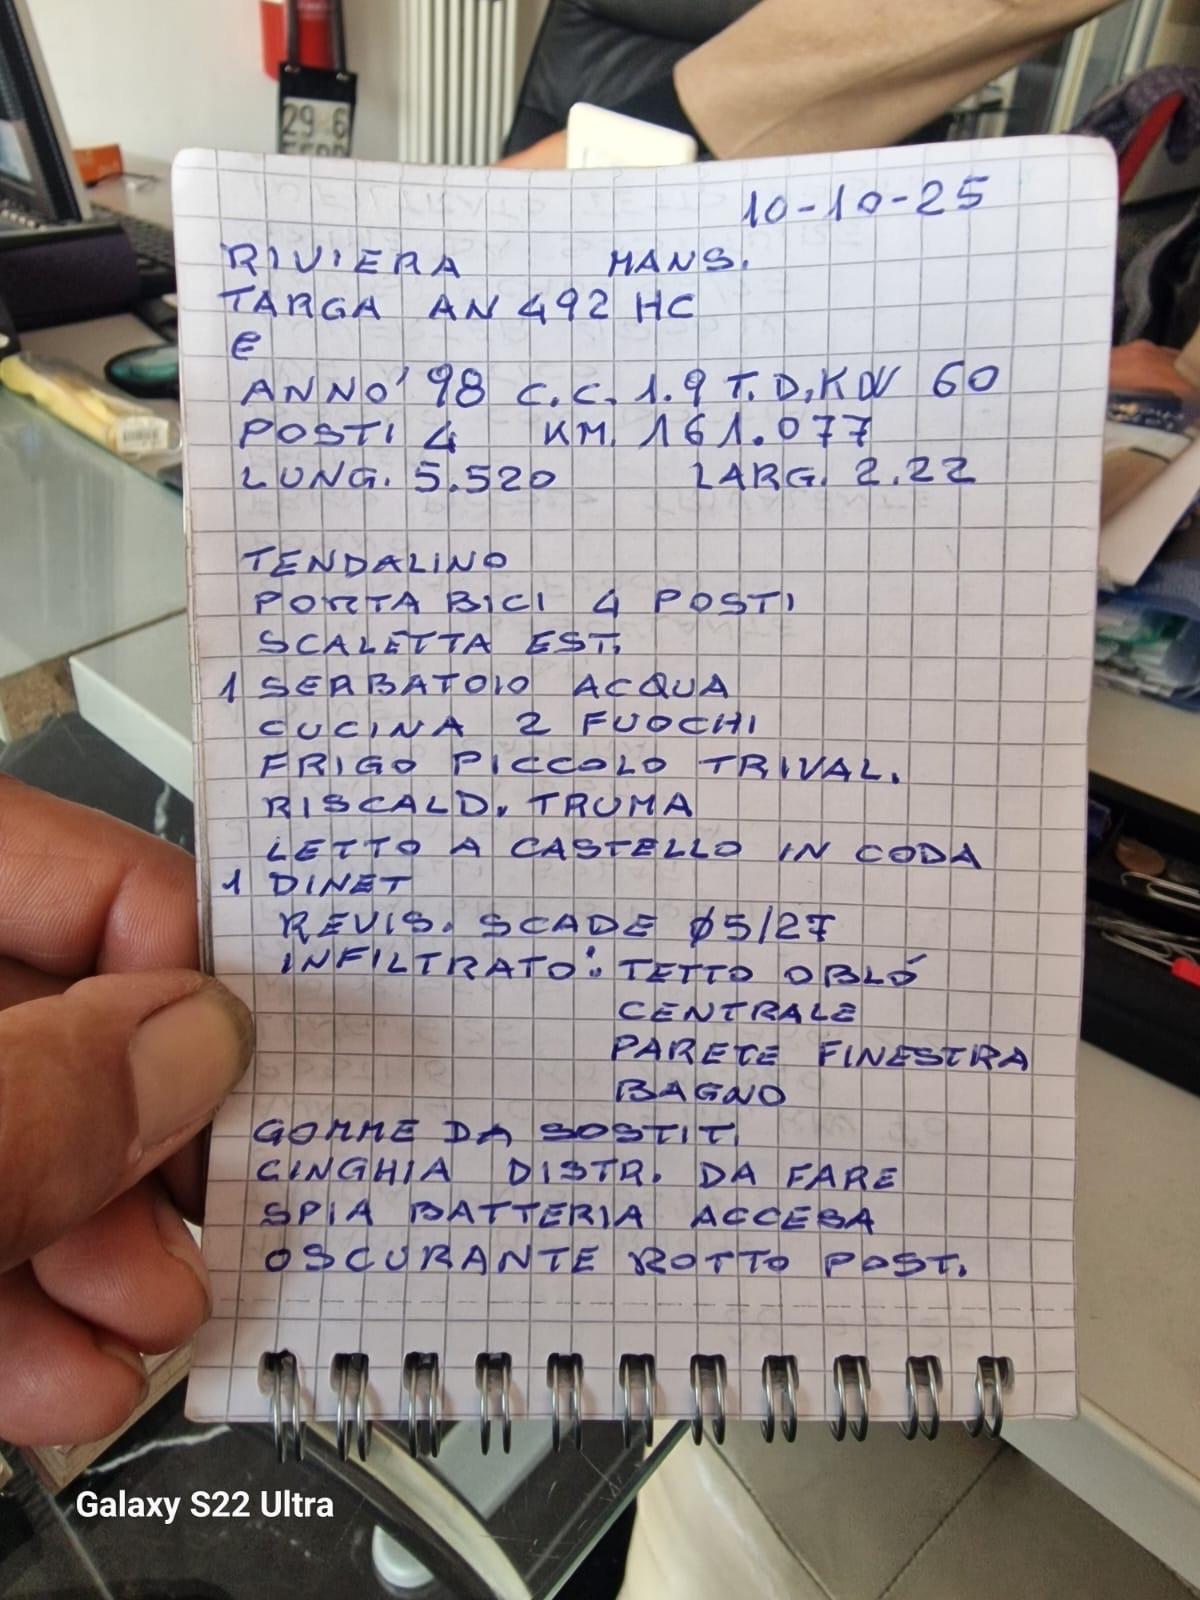 29 6
10-10-25
RIVIERA MANS.
TARGA AN 492 HC
E
ANNO '98 C.C. 1.9 T.D. KW 60
POSTI 4 KM. 161.077
LUNG. 5.520 LARG. 2.22
TENDALINO
PORTA BICI 4 POSTI
SCALETTA EST.
1 SERBATOIO ACQUA
CUCINA 2 FUOCHI
FRIGO PICCOLO TRIVAL.
RISCALD. TRUMA
LETTO A CASTELLO IN CODA
1 DINET
REVIS. SCADE 05/27
INFILTRATO: TETTO OBLÓ
CENTRALE
PARETE FINESTRA
BAGNO
GOMME DA SOSTIT.
CINGHIA DISTR. DA FARE
SPIA BATTERIA ACCESA
OSCURANTE ROTTO POST.
Galaxy S22 Ultra